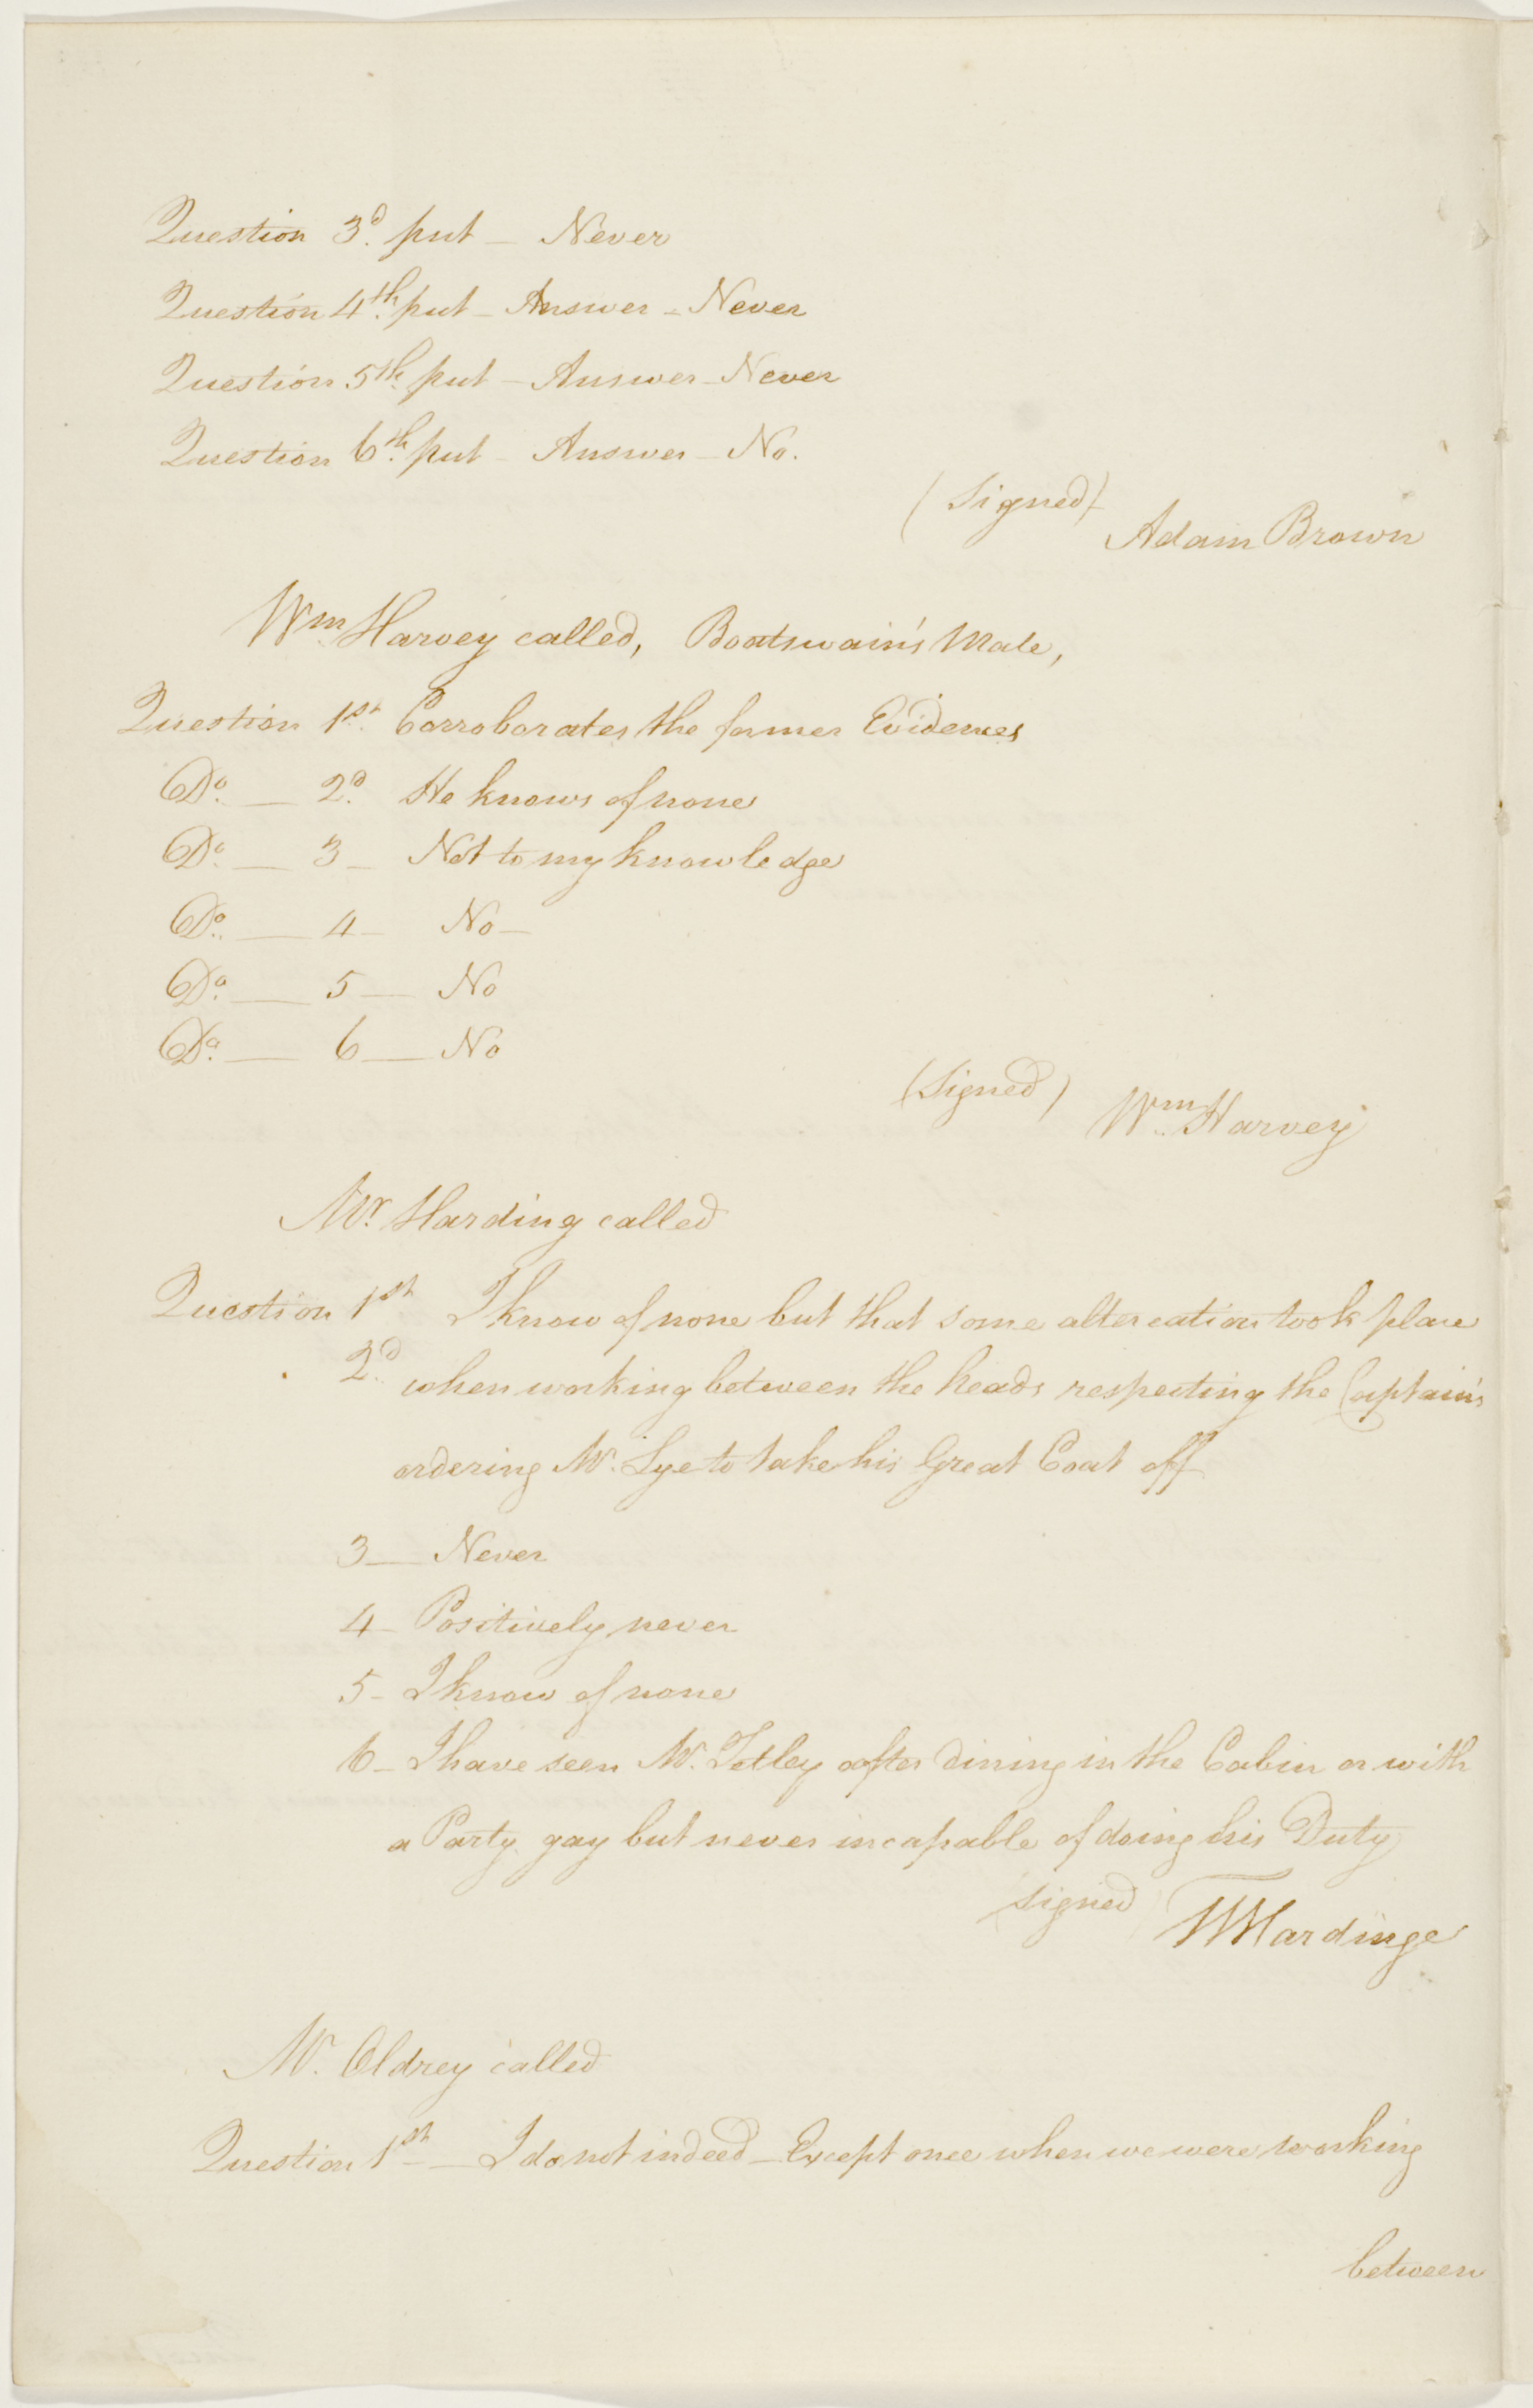 Question 3d. put - Never
Question 4th. put - Answer - Never
Question 5th. put - Answer - Never
Question 6th. put - Answer - No.
(Signed)
Adam Brown
Wm. Harvey called, Boatswain's Mate,
Question 1st. Corroborates the former Evidences
Do. — 2d. He knows of none
Do. — 3 - Not to my knowledge
Do. — 4 - No -
Do. — 5 — No
Do. — 6 — No
(Signed)
Wm. Harvey
Mr. Harding called
Question 1st I know of none but that some altercation took place
2d. when working between the heads respecting the Captain's
ordering Mr. Lye to take his Great Coat off
3 — Never
4 - Positively never
5 - I know of none
6 - I have seen Mr. Tetley after dining in the Cabin or with
a Party gay but never incapable of doing his Duty
(signed)
Hardinge
Mr. Oldrey called
Question 1st - I do not indeed - Except once when we were working
between